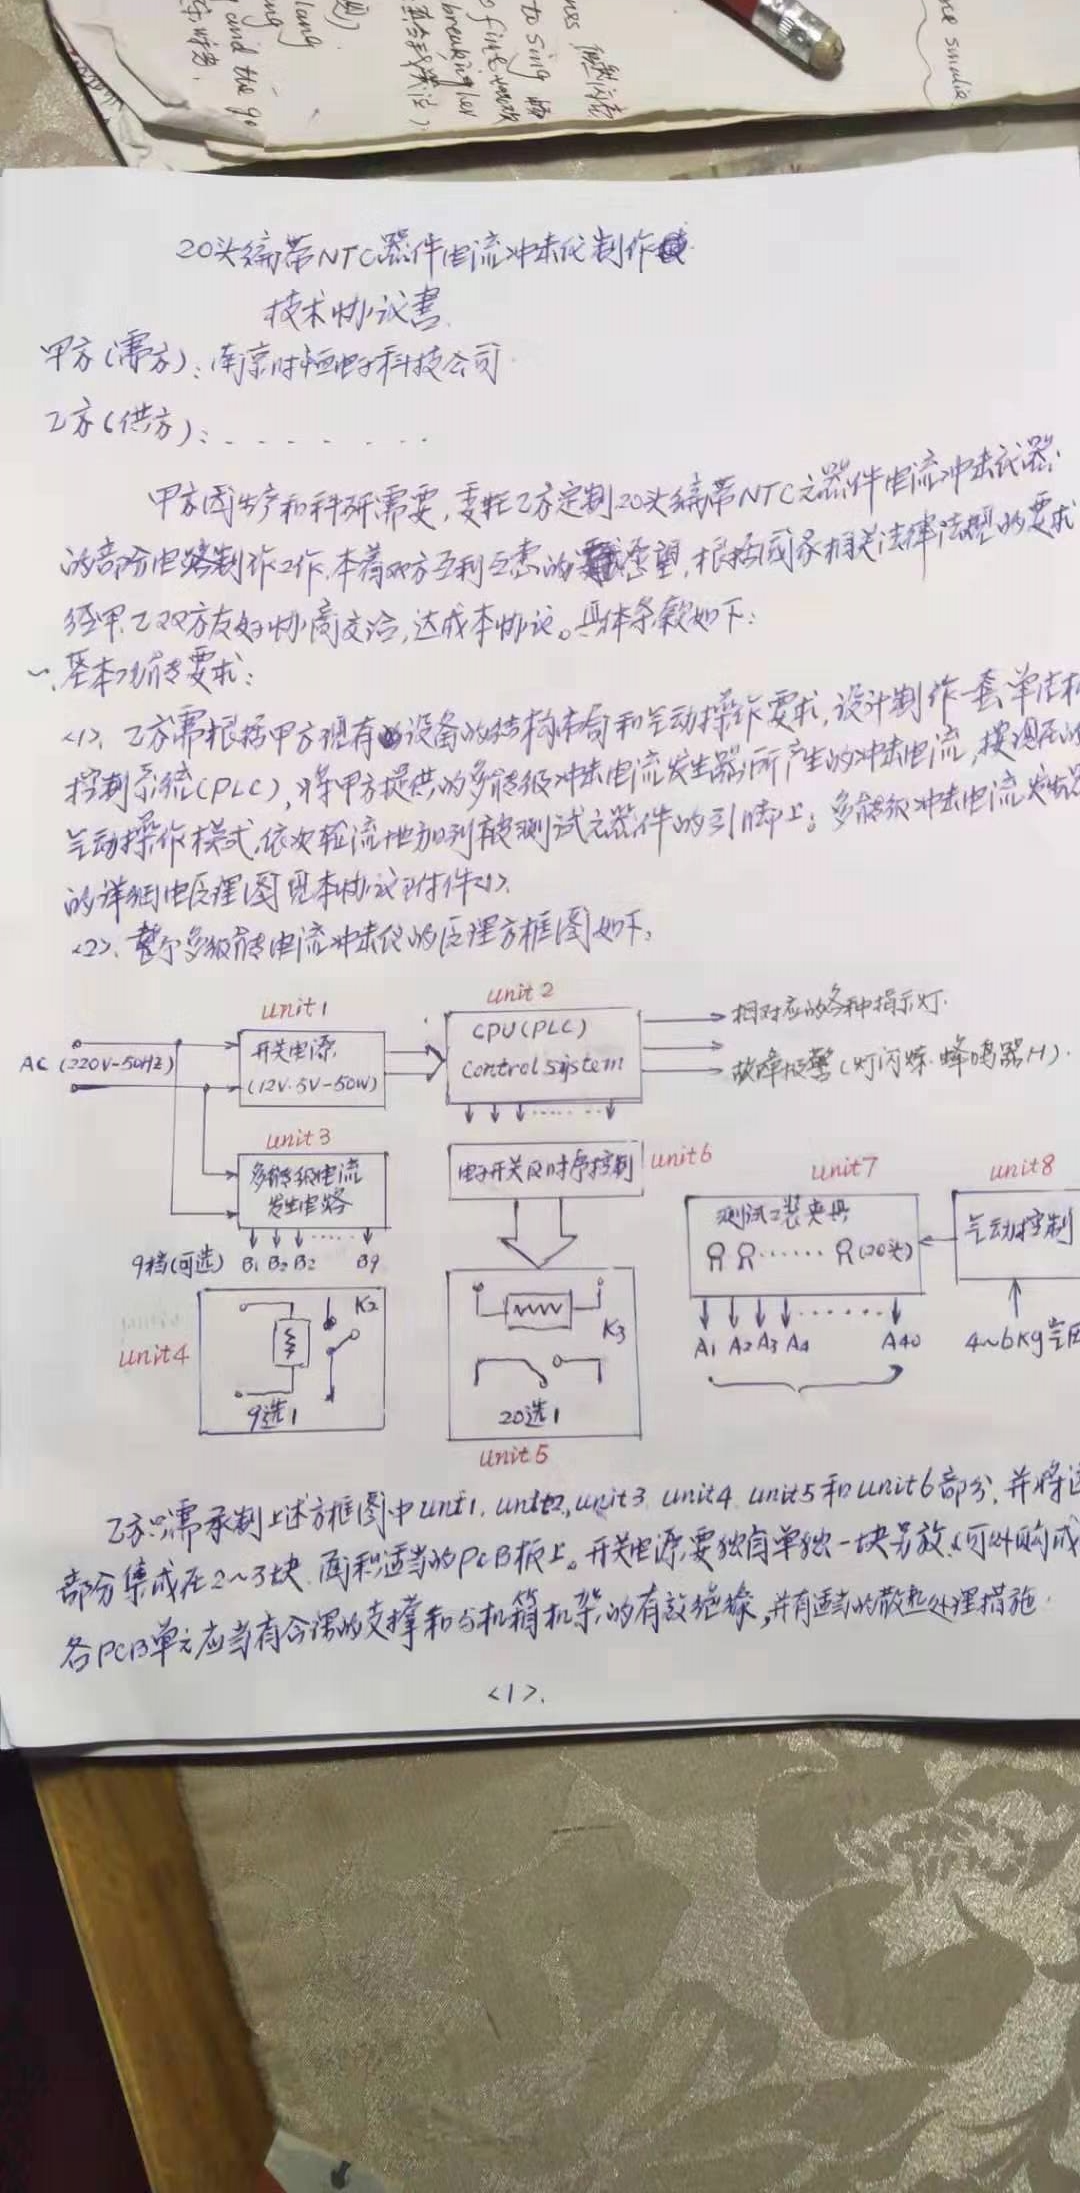 to sing
breaking her
lang
and the go
20头编带NTC器件电流冲击仪制作
技术协议書
甲方(需方):南京时恒电子科技公司
乙方(供方):
甲方因生产和科研需要,委托乙方定制20头编带NTC元器件电流冲击试器
的部份电路制作工作,本着双方互利互惠的愿望,根据国家相关法律法规的要求
经甲、乙双方友好协商交洽,达成本协议。具体条款如下:
一、基本功能要求:
<1>、乙方需根据甲方现有设备的结构布局和气动操作要求,设计制作一套单片机
控制系统(PLC),将甲方提供的多能级冲击电流发生器所产生的冲击电流,按现在的
气动操作模式,依次轮流地加到被测试元器件的引脚上。多能级冲击电流发生器
的详细电原理图见本协议附件<1>.
<2>、整个多级能电流冲击仪的原理方框图如下:
unit1
unit 2
AC (220V-50HZ)
开关电源
(12V.5V-50W)
CPU(PLC)
Control system
相对应的各种指示灯.
故障报警(灯闪烁.蜂鸣器H).
unit3
多能级电流
发生电路
9档(可选) B1 B2 B2 B9
电子开关及时序控制
unit6
unit7
测试工装夹具
(20头)
A1 A2 A3 A4 A40
unit8
气动控制
4~6Kg气压
unit4
K2
9选1
K3
20选1
unit5
乙方只需承制上述方框图中unit1, unit2, unit3 unit4 unit5和unit6部分,并将这
部分集成在2~3块面积适当的PCB板上。开关电源要独自单独一块另放(可外购成
各PCB单元应当有合理的支撑和与机箱机架的有效绝缘,并有适当的散热处理措施.
<1>.